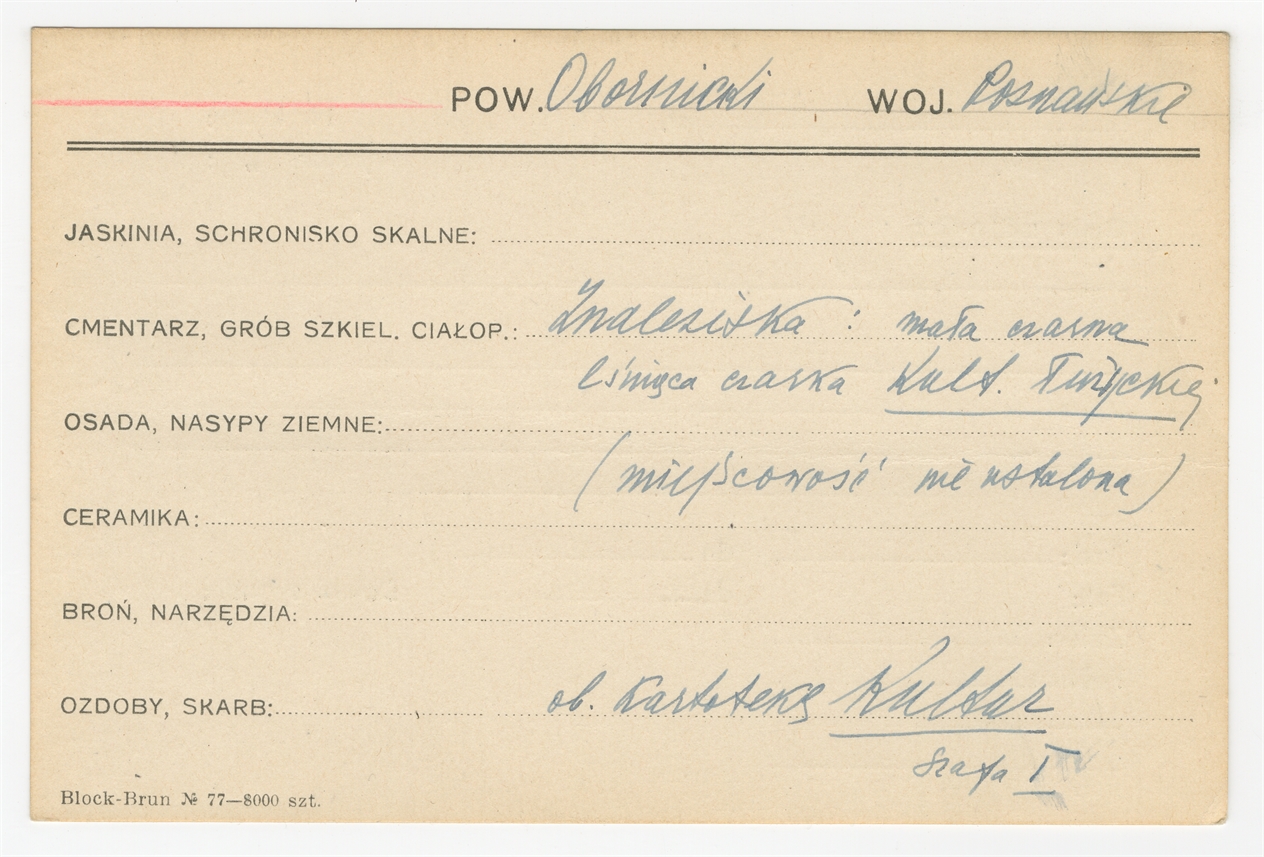 POW. Obornicki WOJ. Poznańskie
JASKINIA, SCHRONISKO SKALNE:
CMENTARZ, GRÓB SZKIEL. CIAŁOP.: Znaleziska : mała czarna
lśniąca czarka Kult. Łużyckiej
OSADA, NASYPY ZIEMNE:
(miejscowość nie ustalona)
CERAMIKA:
BROŃ, NARZĘDZIA:
OZDOBY, SKARB: ob. Kartotekę Kultur
szafa I
Block-Brun № 77—8000 szt.